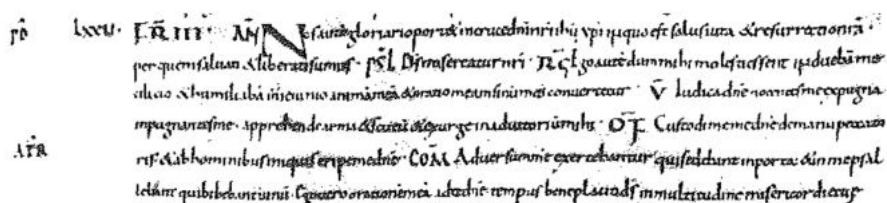 LXXV. FR III AN Nos autē gloriari oport& in cruce dni nri ihu xpi in quo est salus uita & resurrectio nrā
per quem saluati & liberati sumus. PSL Ds misereatur nri. go autē dum mihi molesti essent induebā me
cilicio & humiliabā in ieiunio animā meā & oratio mea in sinu meo conuertetur. V Iudica dne nocentes me expugna
inpugnantes me. apprehende arma & scutū & exurge in adiutoriū mihi. OF Custodi me dne de manu peccato
ris & ab hominibus iniquis eripe me dne. COM Aduersum me exercebantur qui sedebant in porta & in me psal
lebant qui bibebant uinū. Ego uero orationē meā ad te dne tempus beneplaciti ds in multitudine misericordie tue